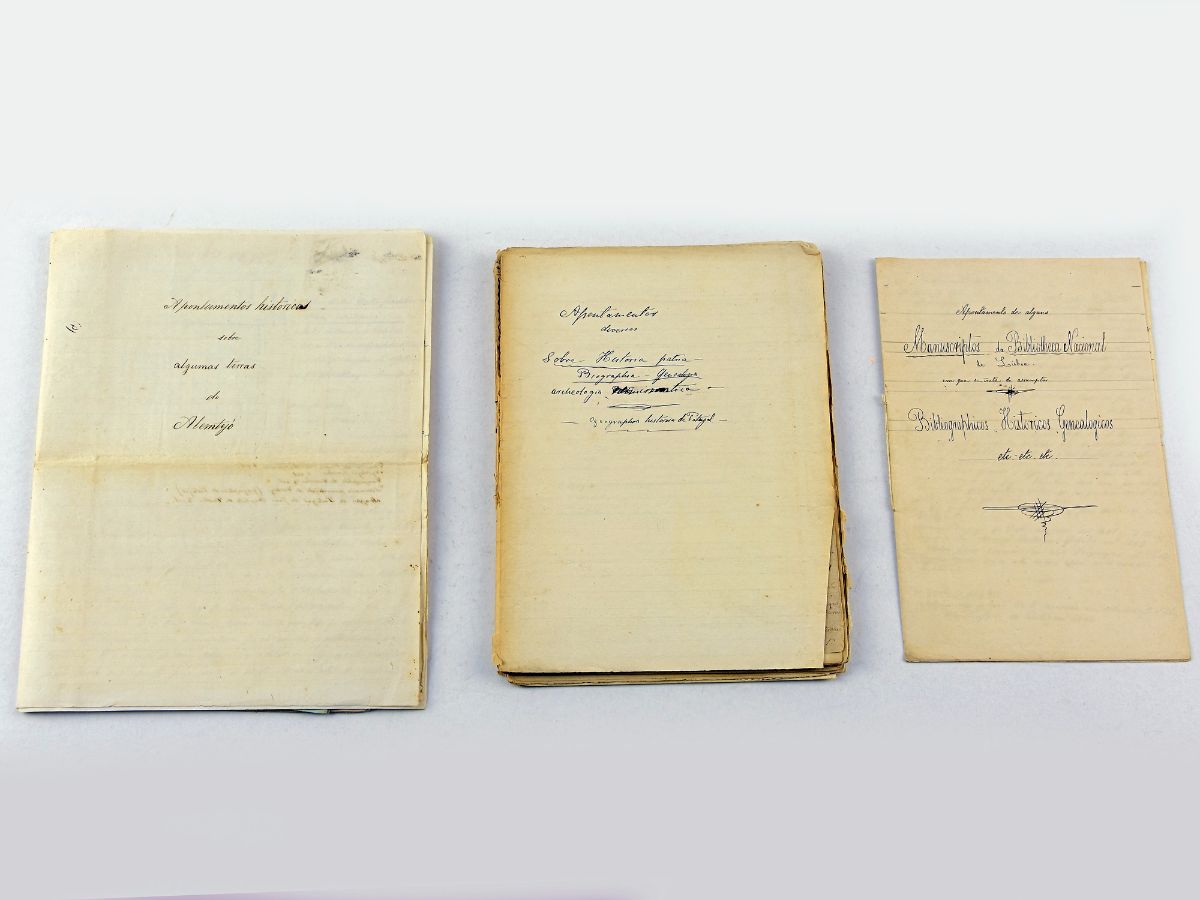 Apontamentos históricos
sobre
algumas terras
do
Alemtejo
Apontamentos
diversos
Sobre - Historia patria -
Biographia -
archeologia -
- Geographia historica de Portugal -
Apontamento de alguns
Manuscriptos da Bibliotheca Nacional
de Lisboa
em que se trata de assumptos
Bibliographicos, Historicos, Genealogicos
etc. etc. etc.